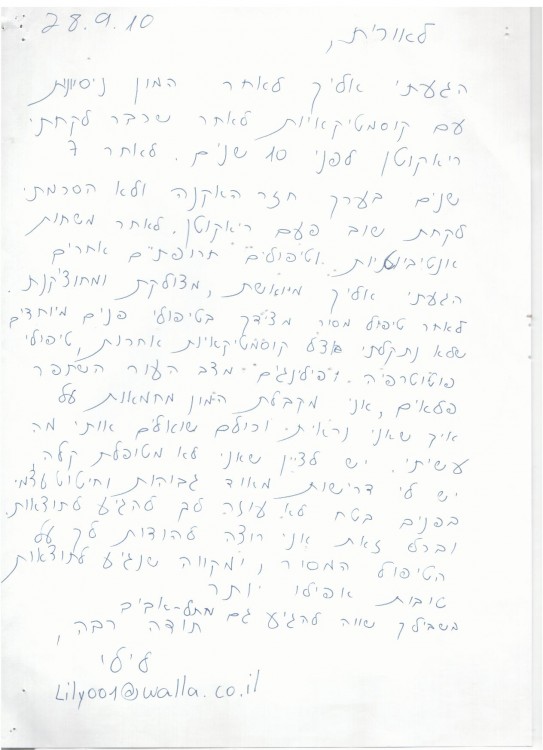 28.9.10
לאורית,
הגעתי אליך לאחר המון ניסיונות
עם קוסמטיקאיות לאחר שכבר לקחתי
ריאקוטן לפני 10 שנים. לאחר 7
שנים בערך חזר האקנה ולא הסכמתי
לקחת שוב פעם ריאקוטן. לאחר משחות
אנטיביוטיות וטיפולים תרופתיים אחרים
הגעתי אליך מיואשת, מצולקת ומחוצ'קנת.
לאחר טיפול מסור מצידך בטיפולי פנים מיוחדים
שלא נתקלתי אצל קוסמטיקאיות אחרות, טיפולי
פוטותרפיה ו"פילינגים" מצב העור השתפר
פלאים, אני מקבלת המון מחמאות על
איך שאני נראית וכולם שואלים אותי מה
עשיתי. יש לציין שאני לא מטופלת קלה
יש לי דרישות מאוד גבוהות וחיטוט עצמי
בפנים בטח לא עוזר לך להגיע לתוצאות.
ובכל זאת אני רוצה להודות לך על
הטיפול המסור ומקווה שנגיע לתוצאות
טובות אפילו יותר
בשבילך שווה להגיע גם מתל-אביב
תודה רבה,
לילי
Lily001@walla.co.il